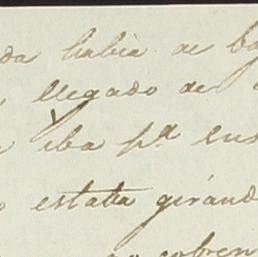 da habia de ba
llegado de
iba pª ens
estaba girand
cobren